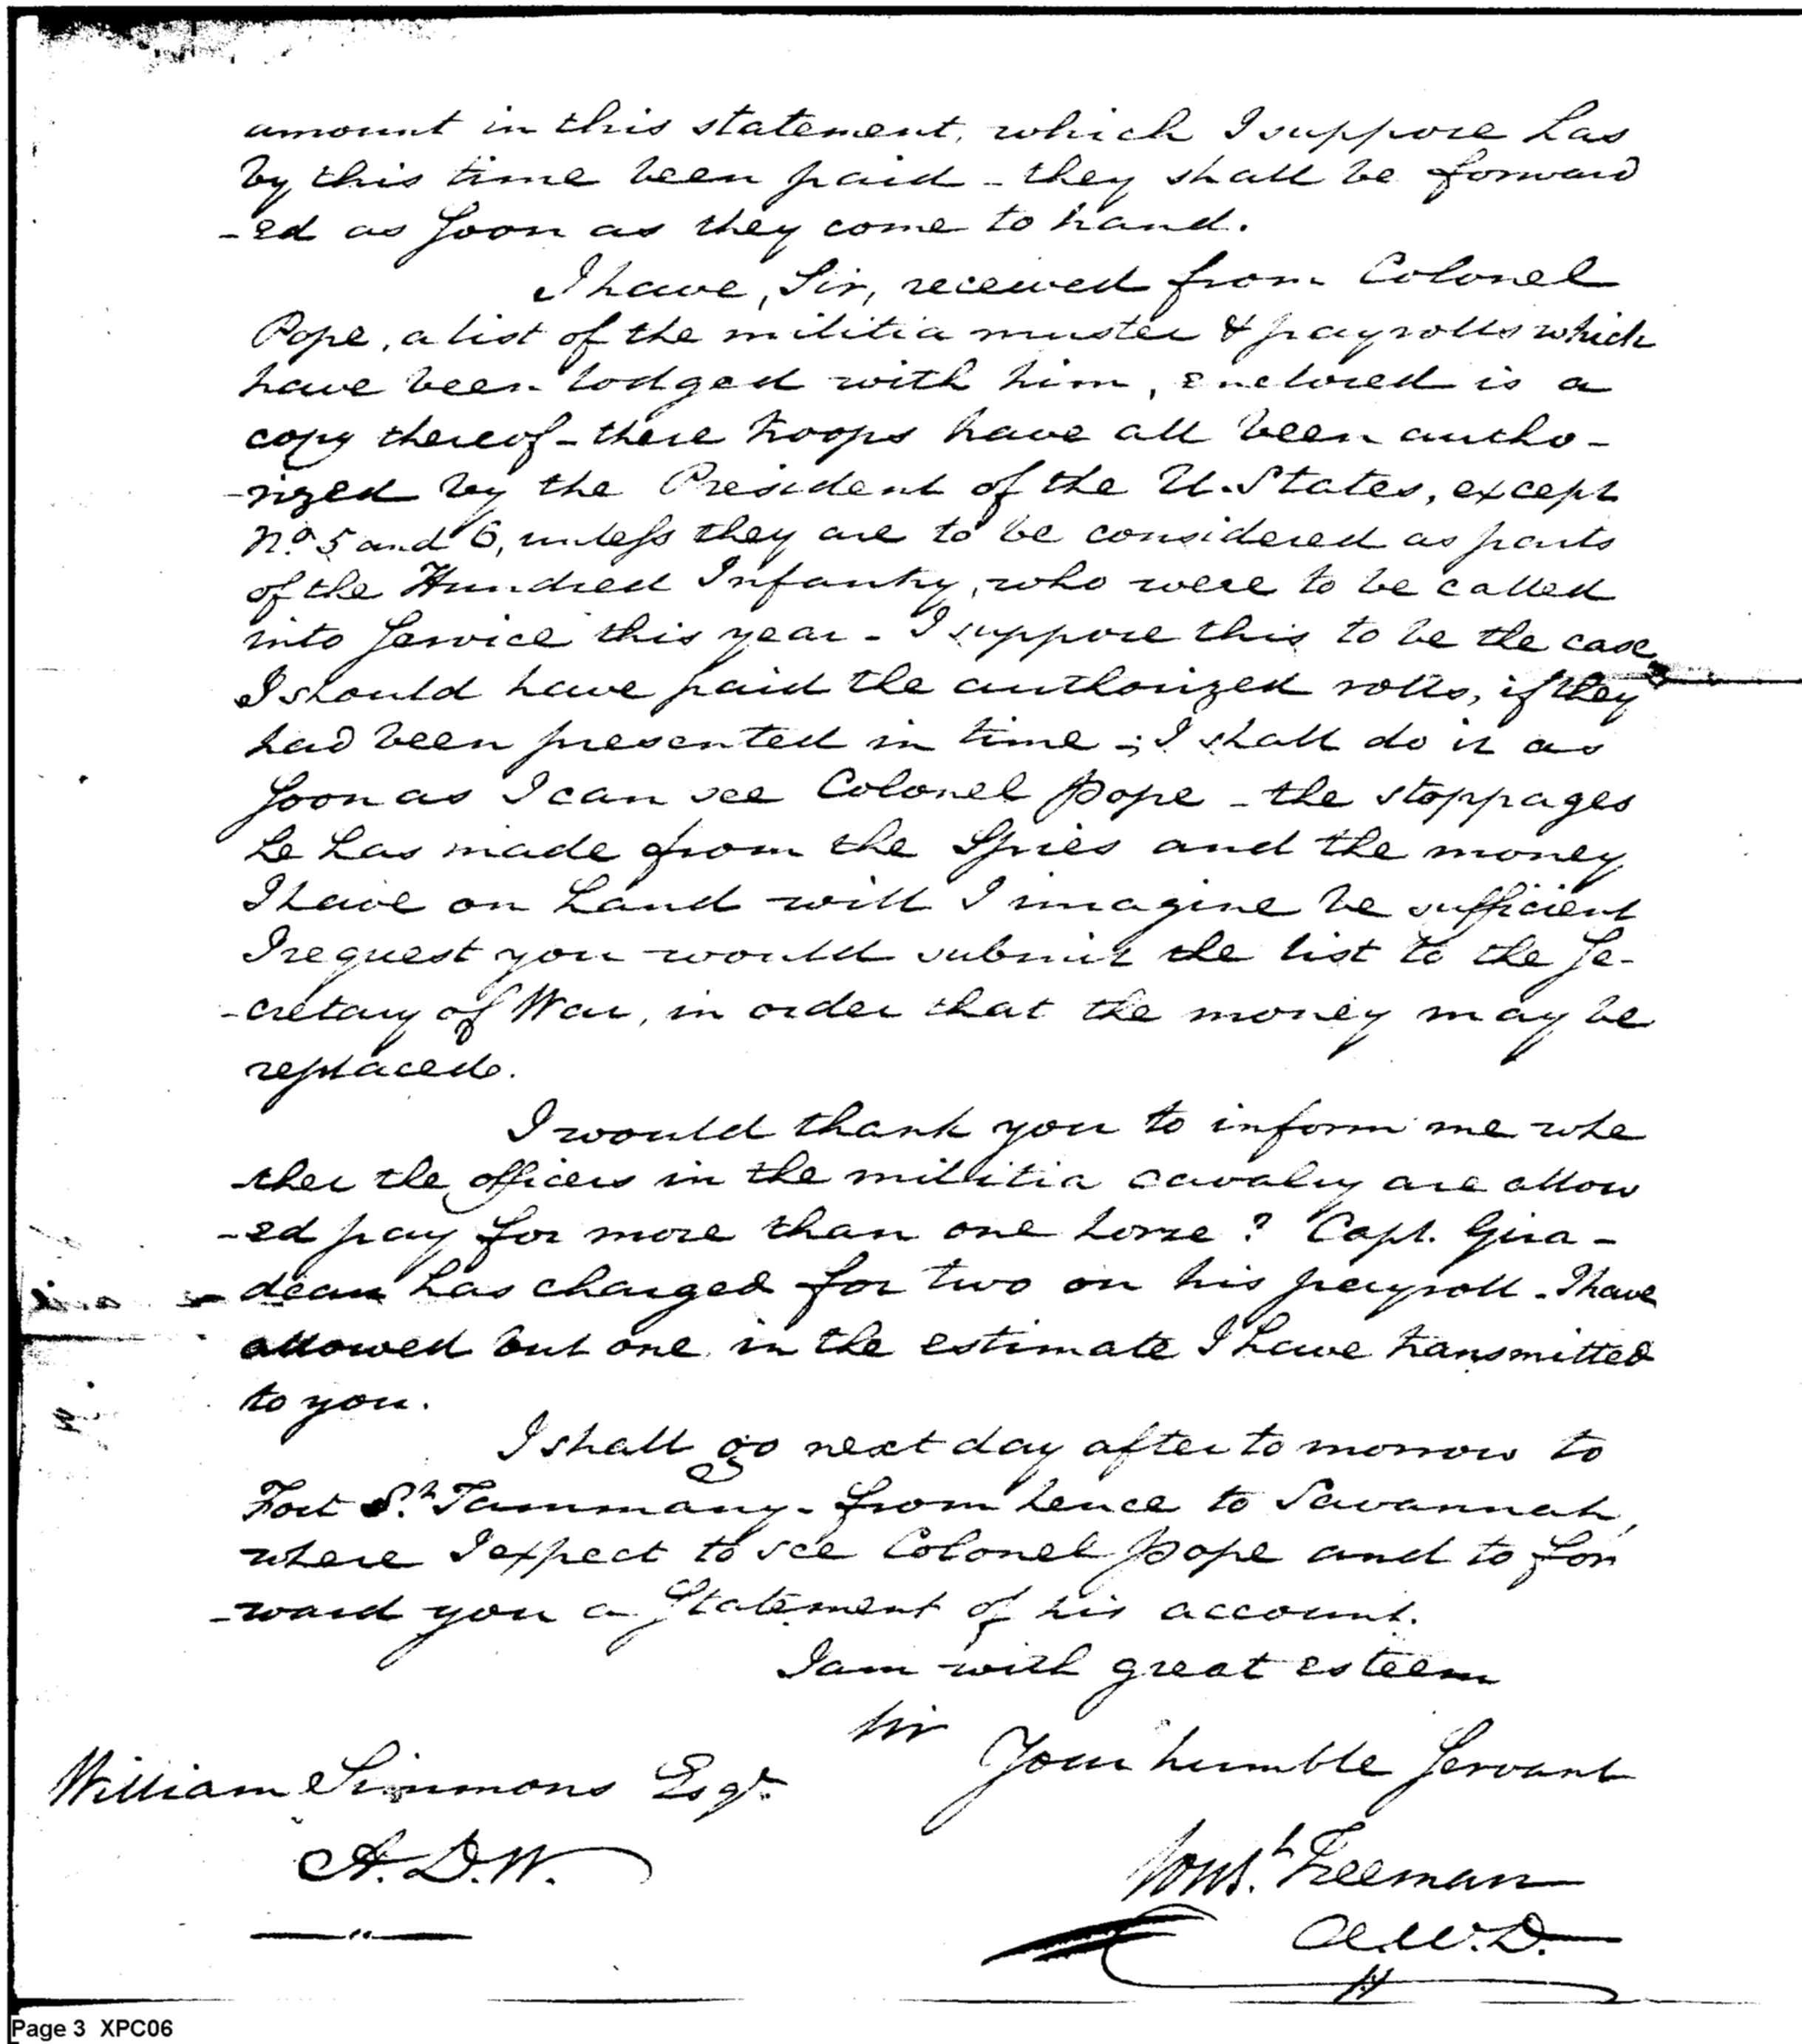 amount in this statement, which I suppose has
by this time been paid - they shall be forward
-ed as soon as they come to hand.
I have, Sir, received from Colonel
Pope, a list of the militia muster & payrolls which
have been lodged with him, enclosed is a
copy thereof - these troops have all been autho-
-rized by the President of the U. States, except
No. 5 and 6, unless they are to be considered as parts
of the Hundred Infantry, who were to be called
into Service this year - I suppose this to be the case
I should have paid the authorized rolls, if they
had been presented in time -; I shall do it as
soon as I can see Colonel Pope - the stoppages
he has made from the Spies and the money
I have on hand will I imagine be sufficient
I request you would submit the list to the Se-
-cretary of War, in order that the money may be
replaced.
I would thank you to inform me whe
-ther the officers in the militia cavalry are allow
-ed pay for more than one horse? Capt. Gira-
-deau has charged for two on his payroll - I have
allowed but one in the estimate I have transmitted
to you.
I shall go next day after to morrow to
Fort St. Tammany - from hence to Savannah,
where I expect to see Colonel Pope and to for
-ward you a Statement of his account.
I am with great esteem
Sir
Your humble Servant
William Simmons Esqr.
A. D. W.
Freeman
A.W.D.
Page 3 XPC06